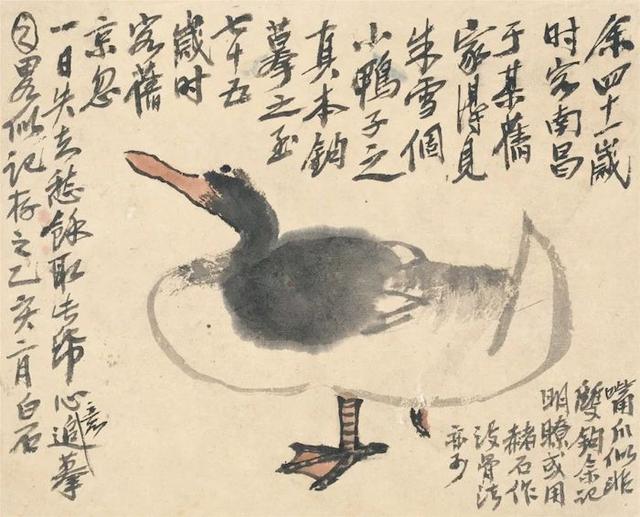 余四十一歲
时客南昌
于某舊
家得見
朱雪個
小鴨子之
真本鈎
摹之至
七十五
歲时
客舊
京忽
一日失去愁餘取此帋心意追摹
之畧似記存之乙亥月白石
嘴爪似非
雙鈎余記
明瞭或用
赭石作
没骨法
亦可